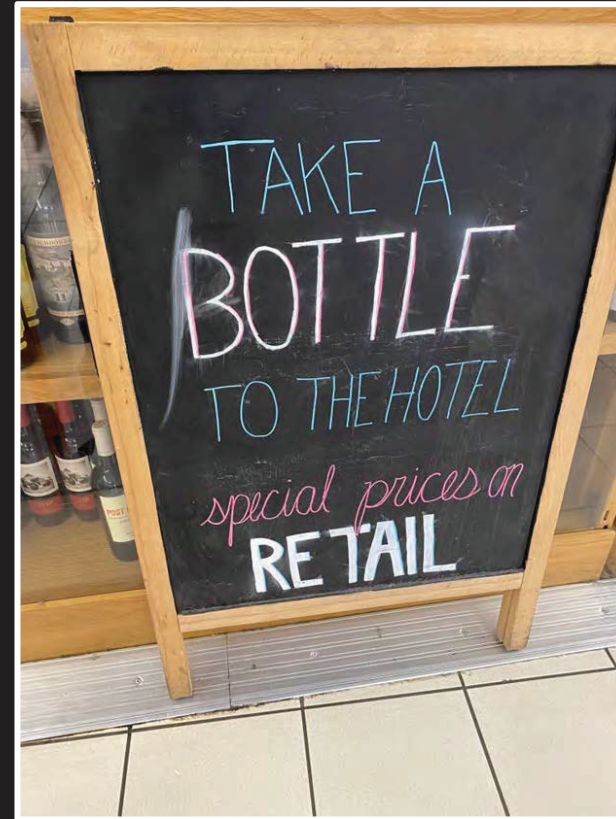 TAKE A
BOTTLE
TO THE HOTEL
special prices on
RETAIL
11
POST